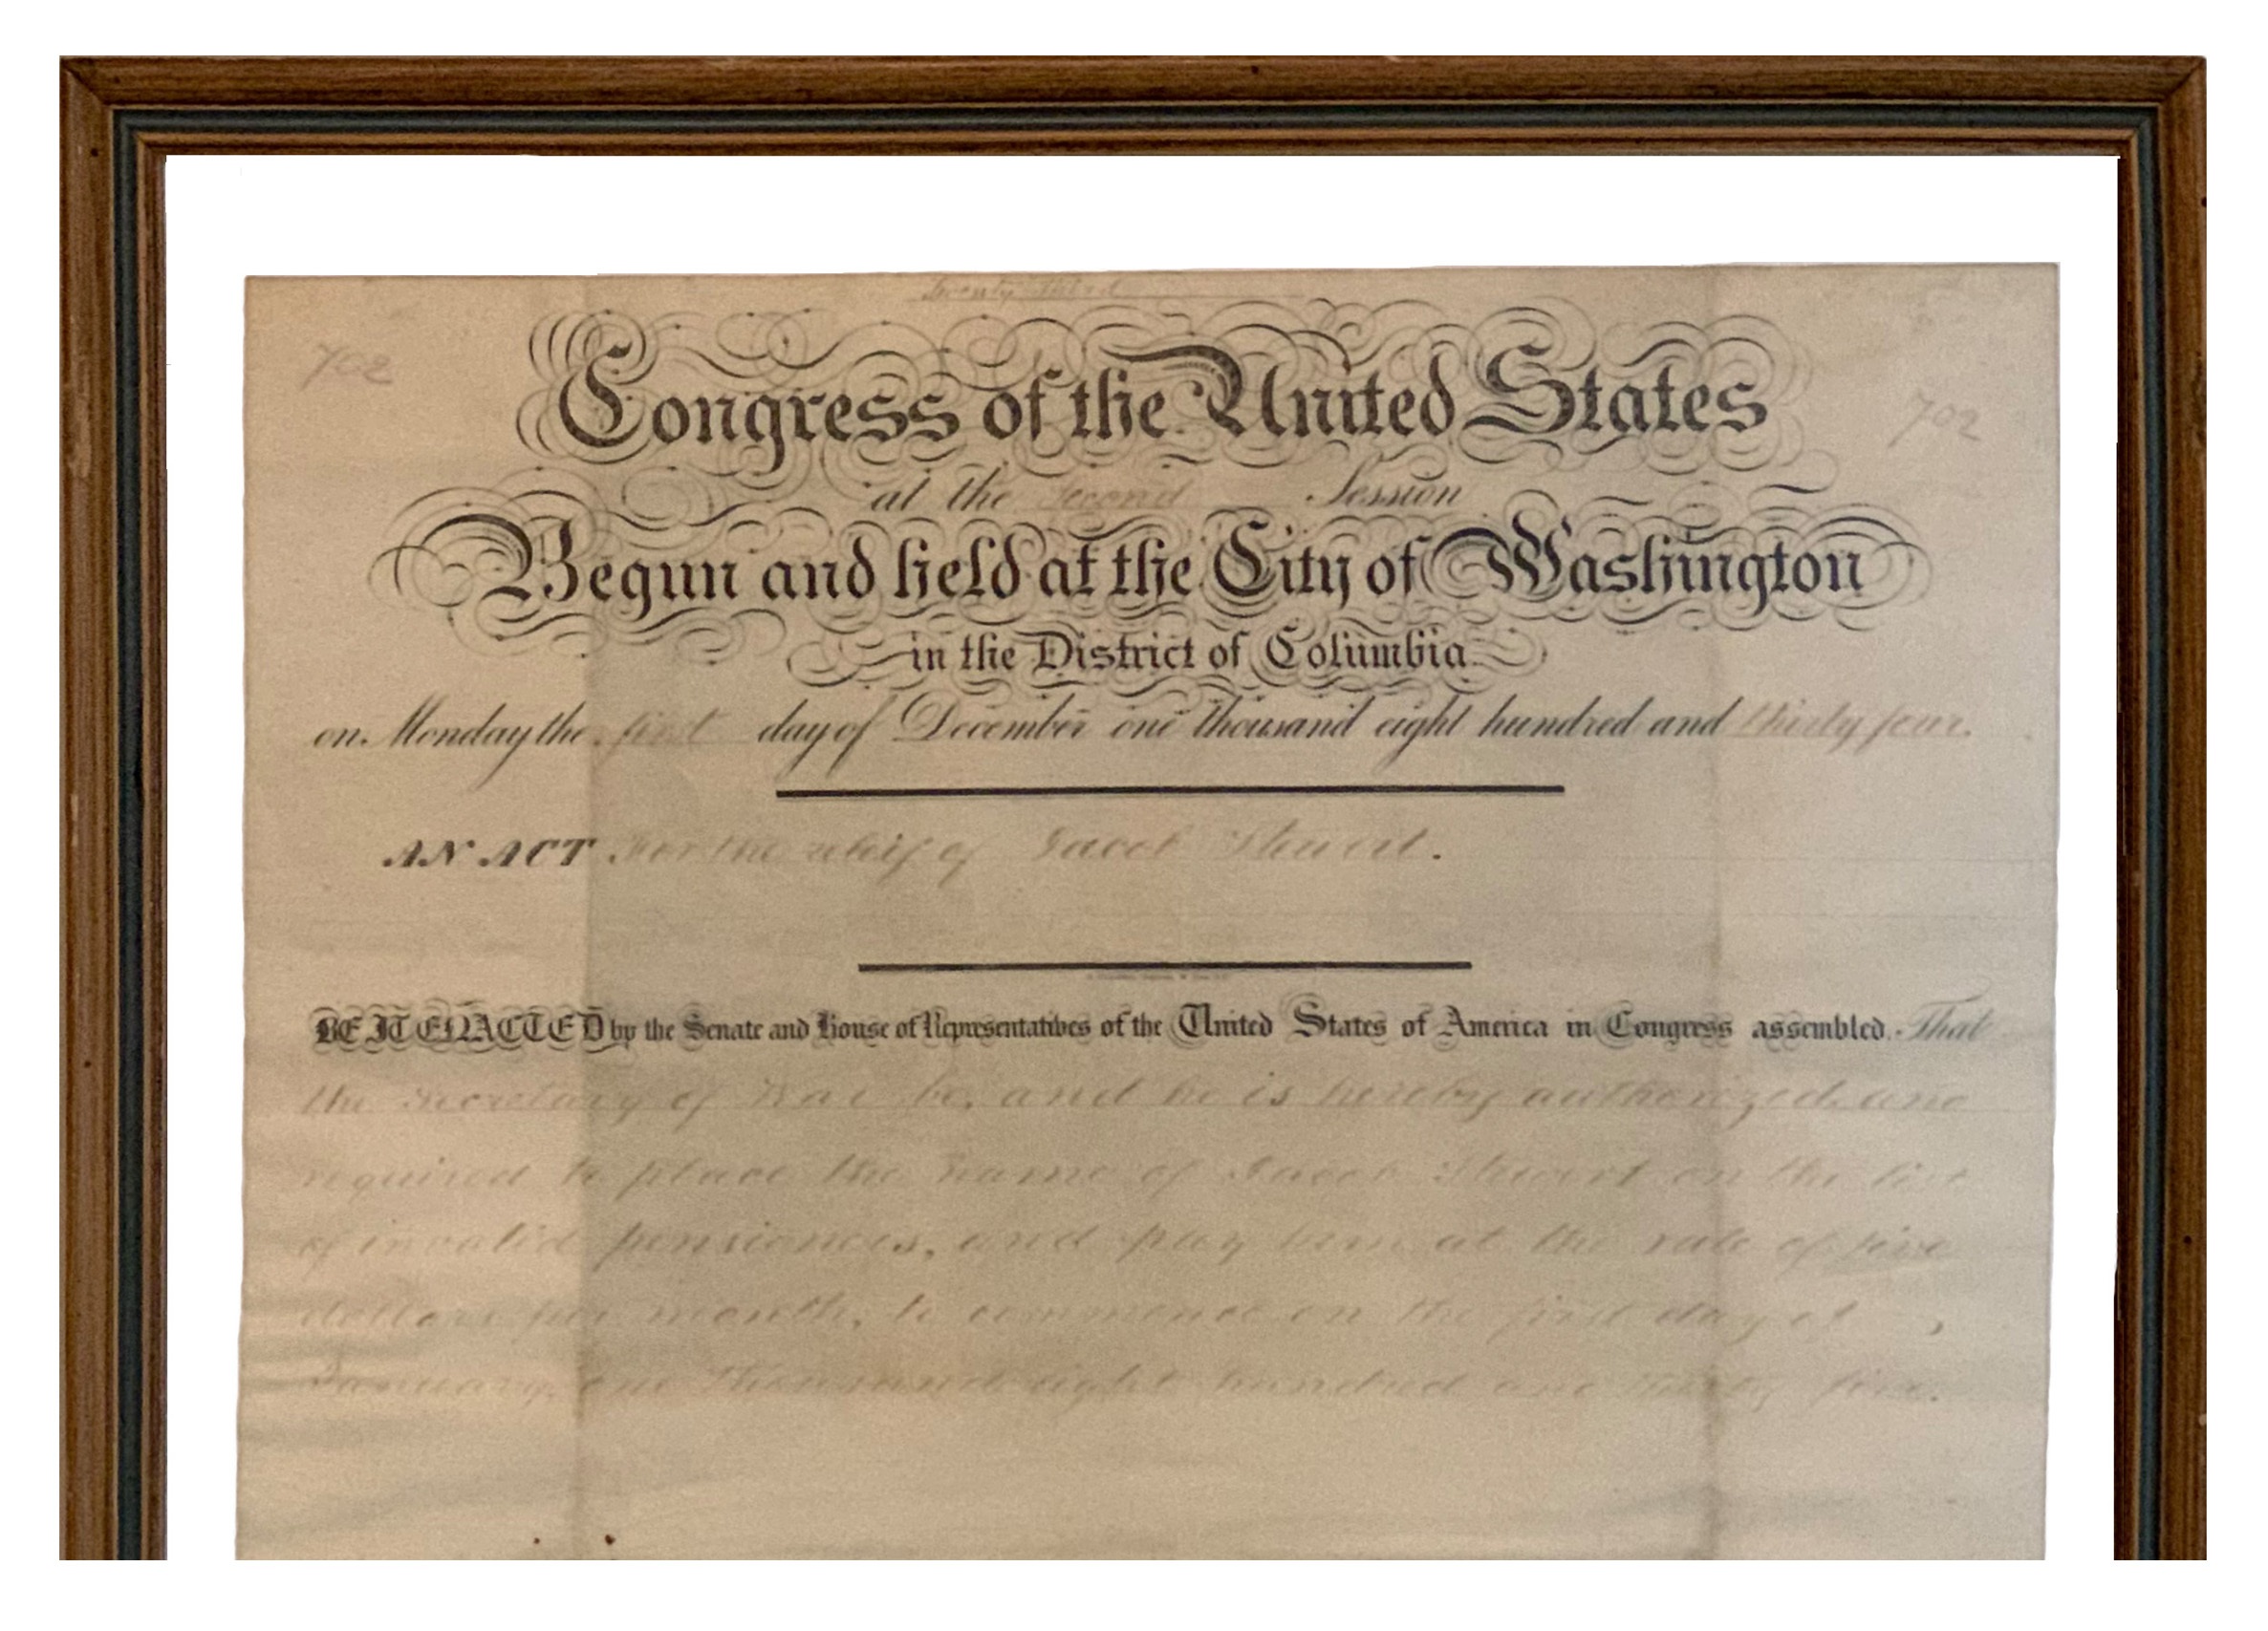 Twenty Third
702
Congress of the United States
702
at the Second Session
Begun and held at the City of Washington
in the District of Columbia
on Monday the first day of December one thousand eight hundred and thirty four.
AN ACT For the relief of Jacob Stewart.
BE IT ENACTED by the Senate and House of Representatives of the United States of America in Congress assembled. That
the Secretary of War be, and he is hereby authorized and
required to place the name of Jacob Stewart on the list
of invalid pensioners, and pay him at the rate of five
dollars per month, to commence on the first day of
January, one thousand eight hundred and thirty five.